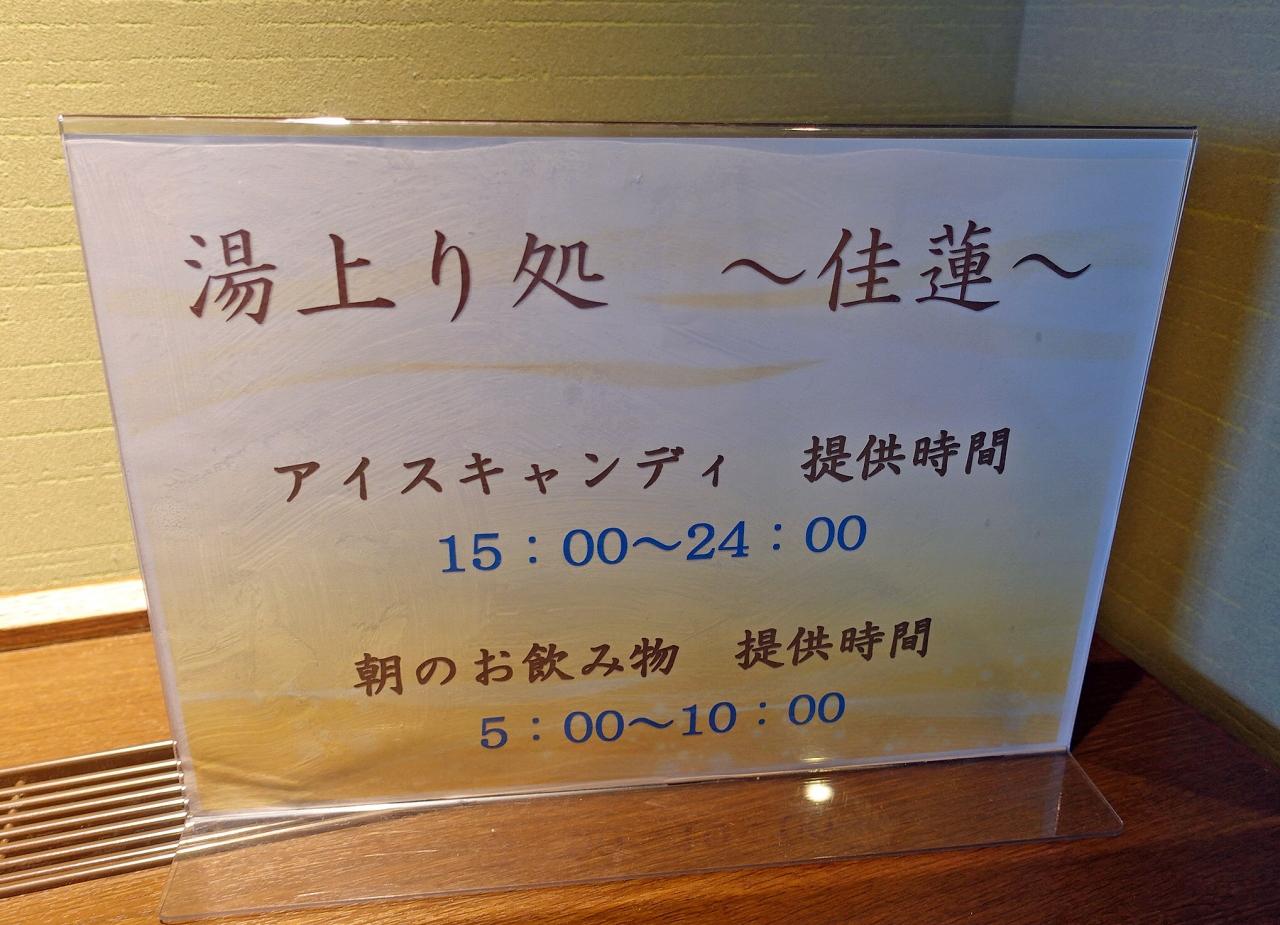 湯上り処　～佳蓮～
アイスキャンディ　提供時間
15：00～24：00
朝のお飲み物　提供時間
5：00～10：00